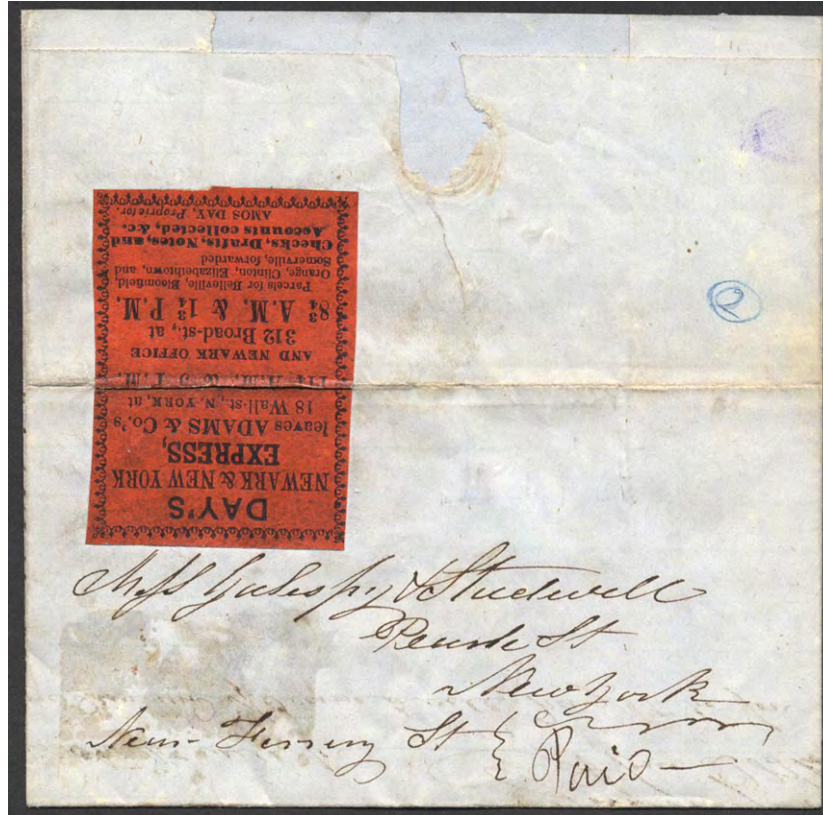 DAY'S
NEWARK & NEW YORK
EXPRESS,
leaves ADAMS & Co.'s
18 Wall-st., N. YORK, at
A.M. & P.M.
AND NEWARK OFFICE
312 Broad-st., at
8¾ A.M. & 1¾ P.M.
Parcels for Belleville, Bloomfield,
Orange, Clinton, Elizabethtown, and
Somerville, forwarded
Checks, Drafts, Notes, and
Accounts collected, &c.
AMOS DAY, Proprietor.
2
Mess Gillespy & Studwell
Pearl St
New York
Near Ferry St } Paid